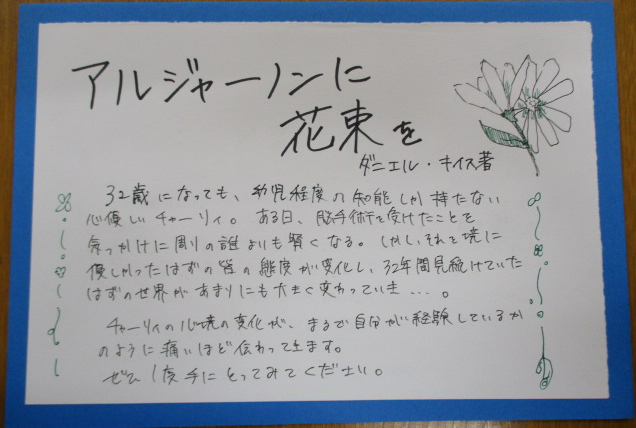 アルジャーノンに
花束を
ダニエル・キイス著
32歳になっても、幼児程度の知能しか持たない
心優しいチャーリィ。ある日、脳手術を受けたことを
気っかけに周りの誰よりも賢くなる。しかし、それを境に
優しかったはずの皆の態度が変化し、32年間見続けていた
はずの世界があまりにも大きく変わっていき....。
チャーリィの心境の変化が、まるで自分が経験しているか
のように痛いほど伝わってきます。
ぜひ1度手にとってみてください。